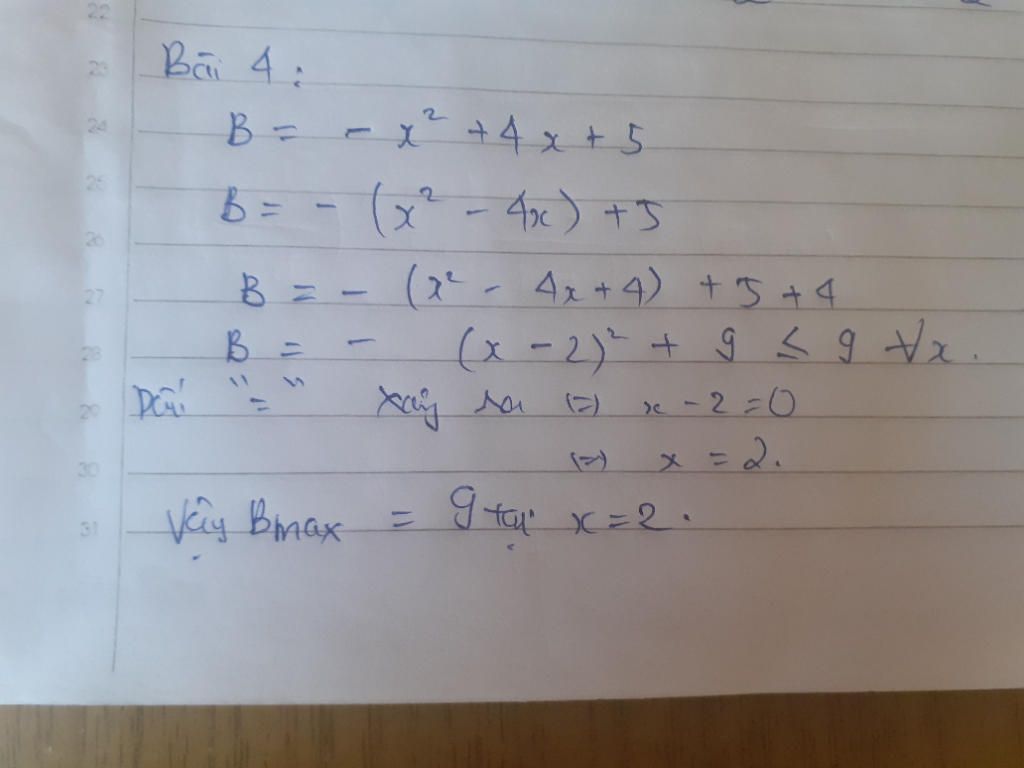 22
23
Bài 4:
24
B = - x² + 4x + 5
25
B = - (x² - 4x) + 5
26
27
B = - (x² - 4x + 4) + 5 + 4
28
B = - (x - 2)² + 9 ≤ 9 ∀x.
29
Dấu "=" xảy ra (=) x - 2 = 0
30
(=) x = 2.
31
Vậy Bmax = 9 tại x = 2.